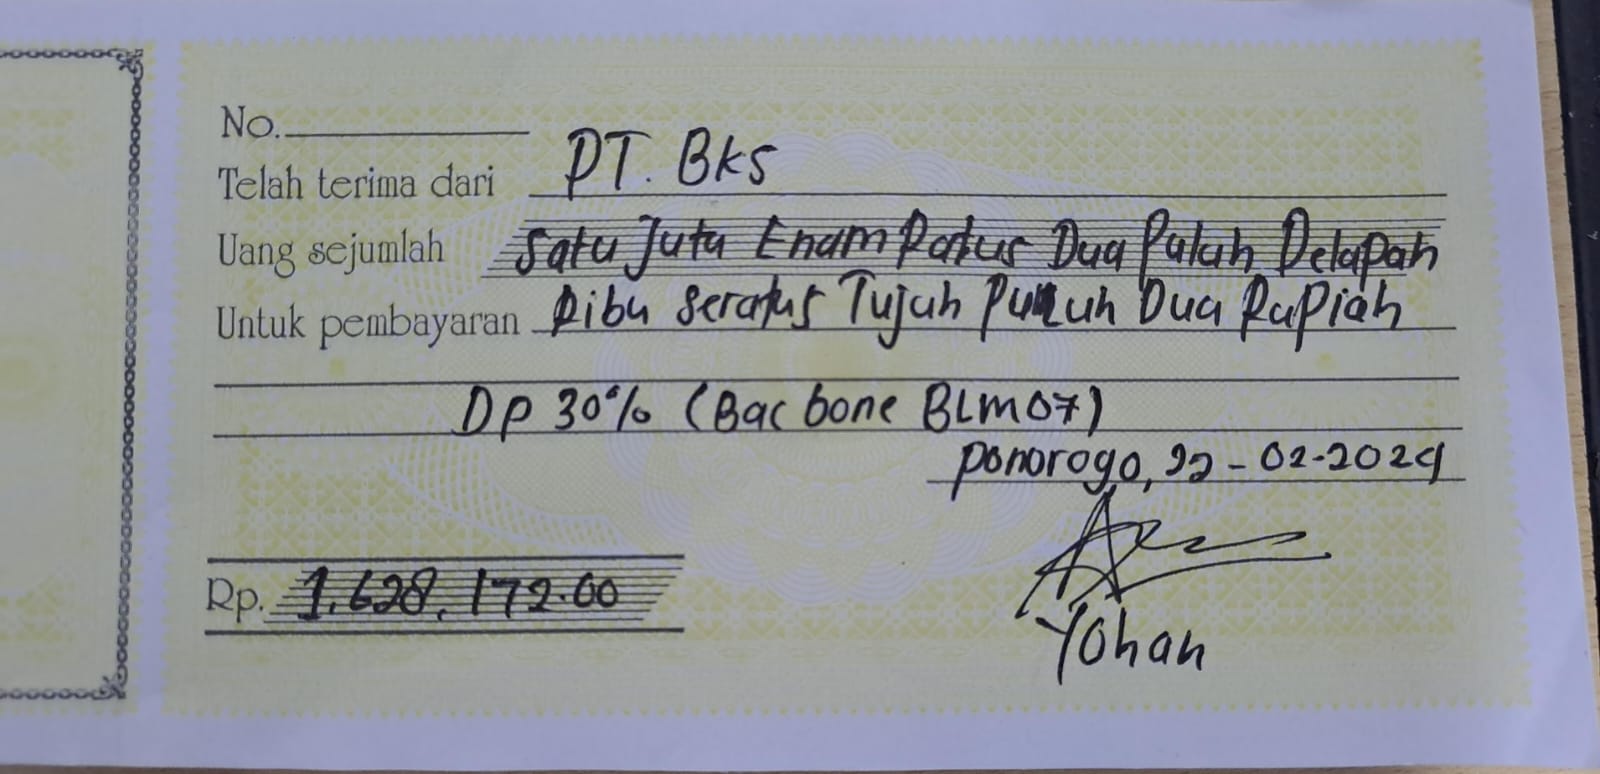 No.
Telah terima dari PT. Bks
Uang sejumlah Satu Juta Enam Ratus Dua Puluh Delapan
Untuk pembayaran Ribu Seratus Tujuh Puluh Dua Rupiah
DP 30% (Bac bone BLM07)
Ponorogo, 22-02-2024
Rp. 1.628.172.00
Yohan